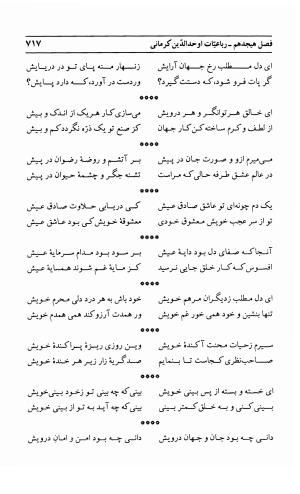 فصل هیجدهم ـ رباعیّات اوحدالدّین کرمانی ۷۱۷
ای دل مـطلب رخ جهان آرایش زنـهار منه پای تو در دریایش
گر پات فرو شود، که دستت گیرد؟ وردست در آورد، که دارد پایش؟
****
ای خالق هر توانگر و هر درویش می‌سازی کار هریک از اندک و بیش
از لطف و کرم ساخته کن کار جهان کز صنع تو یک ذرّه نگردد کم و بیش
****
می‌میرم ازو و صورت جان در پیش بر آتشم و روضهٔ رضوان در پیش
در عالم عشق طرفه حالی که مراست تشنه جگر و چشمهٔ حیوان در پیش
****
یک دم چو نه‌ای تو عاشق صادق عیش کی دریابی حلاوت صادق عیش
تو از سر عجب خویش معشوق خودی معشوقهٔ خویش کی بود عاشق عیش
****
آنجا که صفای دل بود دایهٔ عیش بر سود بود مدام سرمایهٔ عیش
افسوس که کار خلق جایی نرسید کز مایهٔ غم شوند همسایهٔ عیش
****
ای دل مطلب ز دیگران مرهم خویش خود باش به هر درد دلی محرم خویش
تنها بنشین و خود همی خور غم خویش ور همدمت آرزو کند همی همدم خویش
****
سیرم ز حیات محنت آکندهٔ خویش وین روزی ریزهٔ پراکندهٔ خویش
صاحب‌نظری کجاست تا بنمایم صد گریهٔ زار زیر هر خندهٔ خویش
****
ای خسته و بسته از پس بینی خویش بینی که چه بینی تو ز خودبینی خویش
بینی کنی و به خلق کمتر بینی بینی که چه آید به تو از بینی خویش
****
دانی چه بود جان و جهان درویش دانی چه بود امن و امان درویش